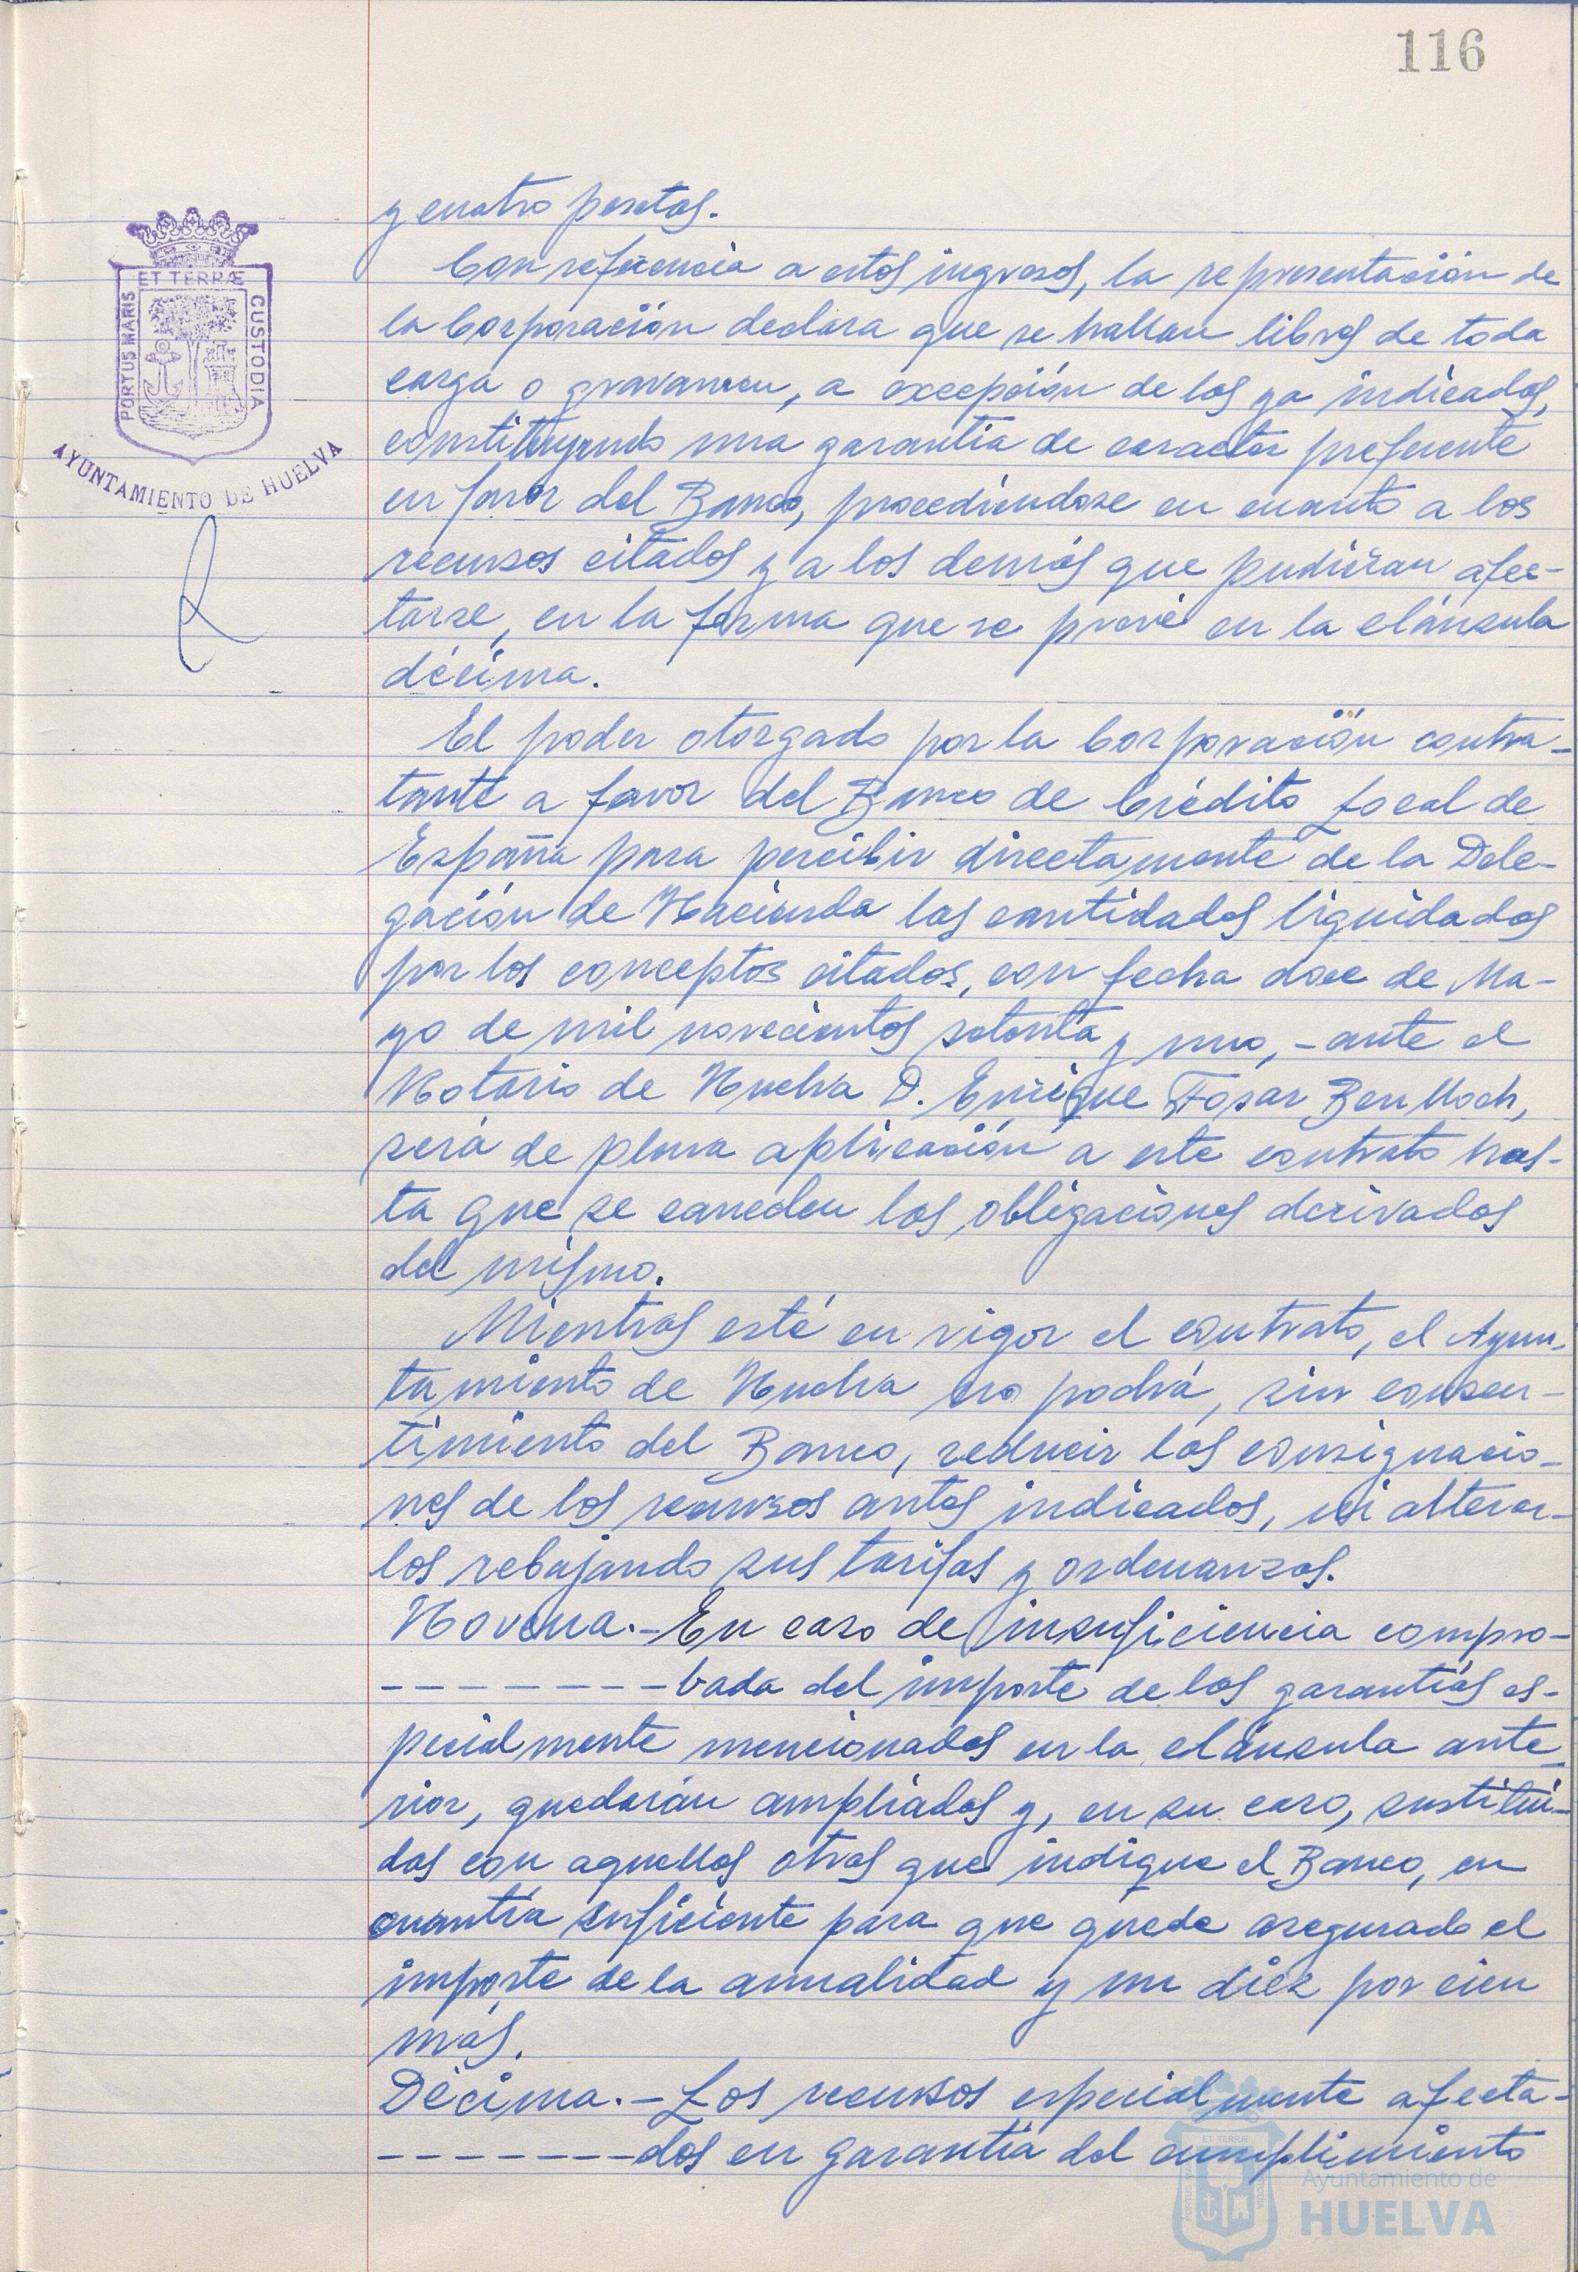 116
y cuatro pesetas.
Con referencia a estos ingresos, la representación de
la Corporación declara que se hallan libres de toda
carga o gravamen, a excepción de los ya indicados,
constituyendo una garantía de caracter preferente
en favor del Banco, procediéndose en cuanto a los
recursos citados y a los demás que pudieran afec-
tarse, en la forma que se prevé en la cláusula
décima.
El poder otorgado por la Corporación contra-
tante a favor del Banco de Crédito Local de
España para percibir directamente de la Dele-
gación de Hacienda las cantidades liquidadas
por los conceptos citados, con fecha doce de Ma-
yo de mil novecientos setenta y uno, - ante el
Notario de Huelva D. Enrique Fosar Benlloch,
será de plena aplicación a este contrato has-
ta que se cancelen las obligaciones derivadas
del mismo.
Mientras esté en vigor el contrato, el Ayun-
tamiento de Huelva no podrá, sin consen-
timiento del Banco, reducir las consignacio-
nes de los recursos antes indicados, ni alterar-
los rebajando sus tarifas y ordenanzas.
Novena.- En caso de insuficiencia compro-
- - - - - - - - bada del importe de las garantías es-
pecialmente mencionadas en la cláusula ante-
rior, quedarán ampliadas y, en su caso, sustitui-
das con aquellas otras que indique el Banco, en
cuantía suficiente para que quede asegurado el
importe de la anualidad y un diez por cien
más.
Décima.- Los recursos especialmente afecta-
- - - - - - - dos en garantía del cumplimiento
ET TERRÆ
PORTUS MARIS
CUSTODIA
AYUNTAMIENTO DE HUELVA
Ayuntamiento de
HUELVA